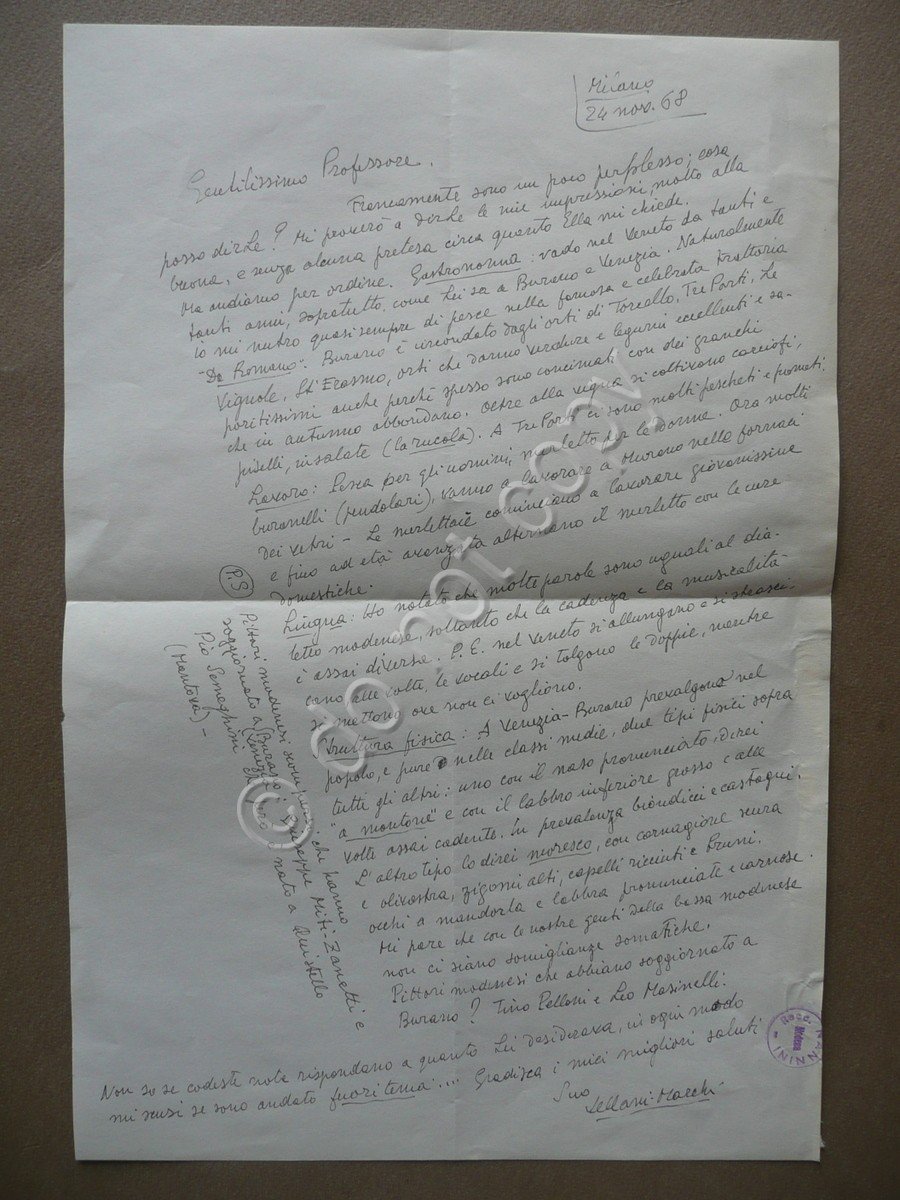 Milano
24 nov. 68
Gentilissimo Professore.
Francamente sono un poco perplesso; cosa
posso dirLe? Mi proverò a dirLe le mie impressioni molto alla
buona, e senza alcuna pretesa circa quanto Ella mi chiede.
Ma andiamo per ordine. Gastronomia: vado nel Veneto da tanti e
tanti anni, sopratutto, come Lei sa a Burano e Venezia. Naturalmente
io mi nutro quasi sempre di pesce nella famosa e celebrata trattoria
"Da Romano". Burano è circondato dagli orti di Torcello, Tre Porti, Le
Vignole, St Erasmo, orti che danno verdure e legumi eccellenti e sa-
poritissimi anche perchè spesso sono concimati con dei granchi
che in autunno abbondano. Oltre alla vigna si coltivano carciofi,
piselli, insalate (la rucola). A Tre Porti ci sono molti pescheti e frutteti.
Lavoro: Pesca per gli uomini, merletto per le donne. Ora molti
buranelli (pendolari), vanno a lavorare a Murano nelle fornaci
dei vetri - Le merlettaie cominciano a lavorare giovanissime
e fino ad età avanzata alternano il merletto con le cure
domestiche.
Lingua: Ho notato che molte parole sono uguali al dia-
letto modenese, soltanto che la cadenza e la musicalità
è assai diversa. P.E. nel Veneto si allungano e si strasci-
cano alle volte, le vocali e si tolgono le doppie, mentre
si mettono ove non ci vogliono.
Struttura fisica: A Venezia-Burano prevalgono nel
popolo, e pure nelle classi medie, due tipi fisici sopra
tutti gli altri: uno con il naso pronunciato, direi
"a montone" e con il labbro inferiore grosso e alle
volte assai cadente. In prevalenza biondicci e castagni.
L'altro tipo lo direi moresco, con carnagione scura
e olivastra, zigomi alti, capelli ricciuti e bruni.
occhi a mandorla e labbra pronunciate e carnose.
Mi pare che con le nostre genti della bassa modenese
non ci siano somiglianze somatiche.
Pittori modenesi che abbiano soggiornato a
Burano? Tino Pelloni e Leo Masinelli.
Non so se codeste note rispondano a quanto Lei desiderava, in ogni modo
mi scusi se sono andato fuori tema.... Gradisca i miei migliori saluti
Suo
P.S
Pittori modenesi scomparsi che hanno
soggiornato a (Burano): Giuseppe Miti-Zanetti e
Pio Semeghini (Venezia) però nato a Quistello
(Mantova) -
Racc.
Modena
NANNINI
© do not copy